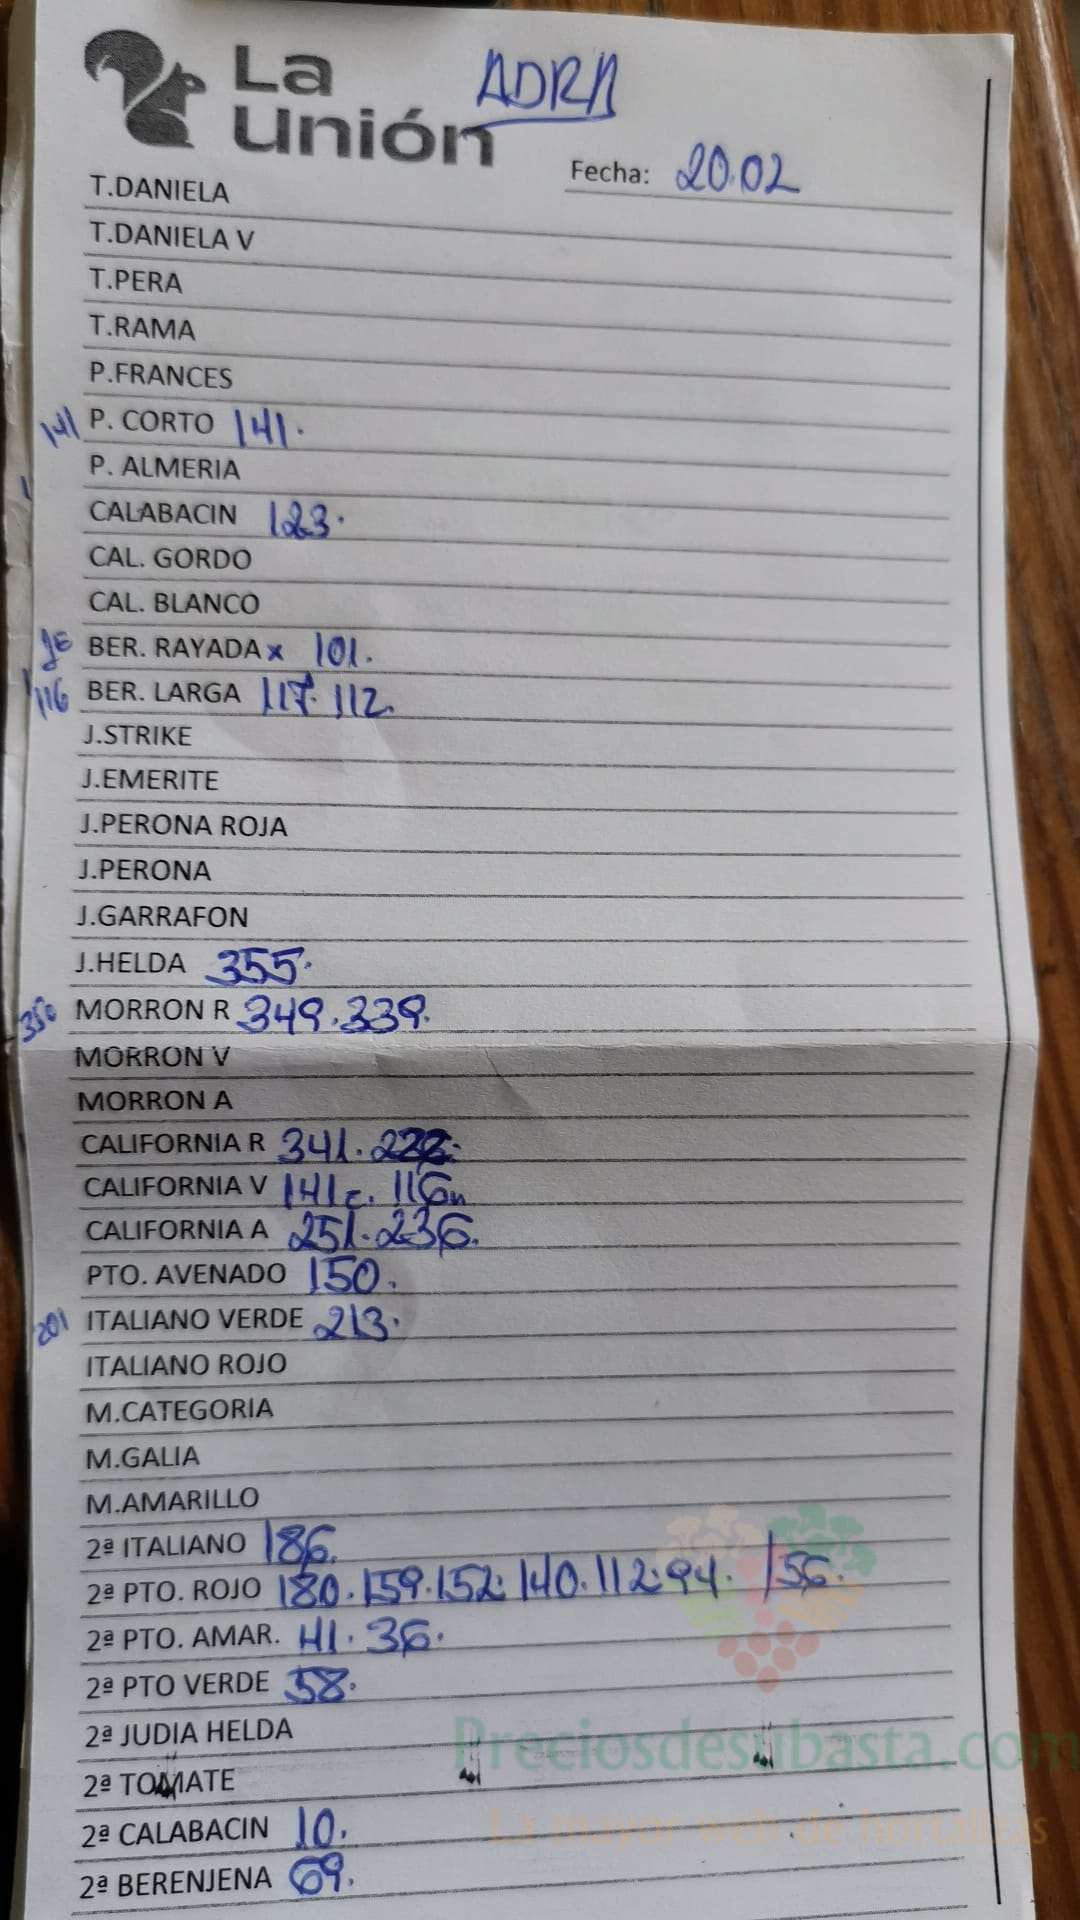 La Unión ADRA
Fecha: 20.02
T.DANIELA
T.DANIELA V
T.PERA
T.RAMA
P.FRANCES
141 P. CORTO 141.
P. ALMERIA
CALABACIN 123.
CAL. GORDO
CAL. BLANCO
BER. RAYADA x 101.
116 BER. LARGA 117. 112.
J.STRIKE
J.EMERITE
J.PERONA ROJA
J.PERONA
J.GARRAFON
J.HELDA 355.
350 MORRON R 349. 339.
MORRON V
MORRON A
CALIFORNIA R 341.
CALIFORNIA V 141c. 116n
CALIFORNIA A 251. 236.
PTO. AVENADO 150.
201 ITALIANO VERDE 213.
ITALIANO ROJO
M.CATEGORIA
M.GALIA
M.AMARILLO
2ª ITALIANO 186.
2ª PTO. ROJO 180. 159. 152. 140. 112. 94. /56.
2ª PTO. AMAR. 41. 36.
2ª PTO VERDE 58.
2ª JUDIA HELDA
Preciosdesubasta.com
2ª TOMATE
2ª CALABACIN 10.
La mayor web de hortalizas
2ª BERENJENA 69.